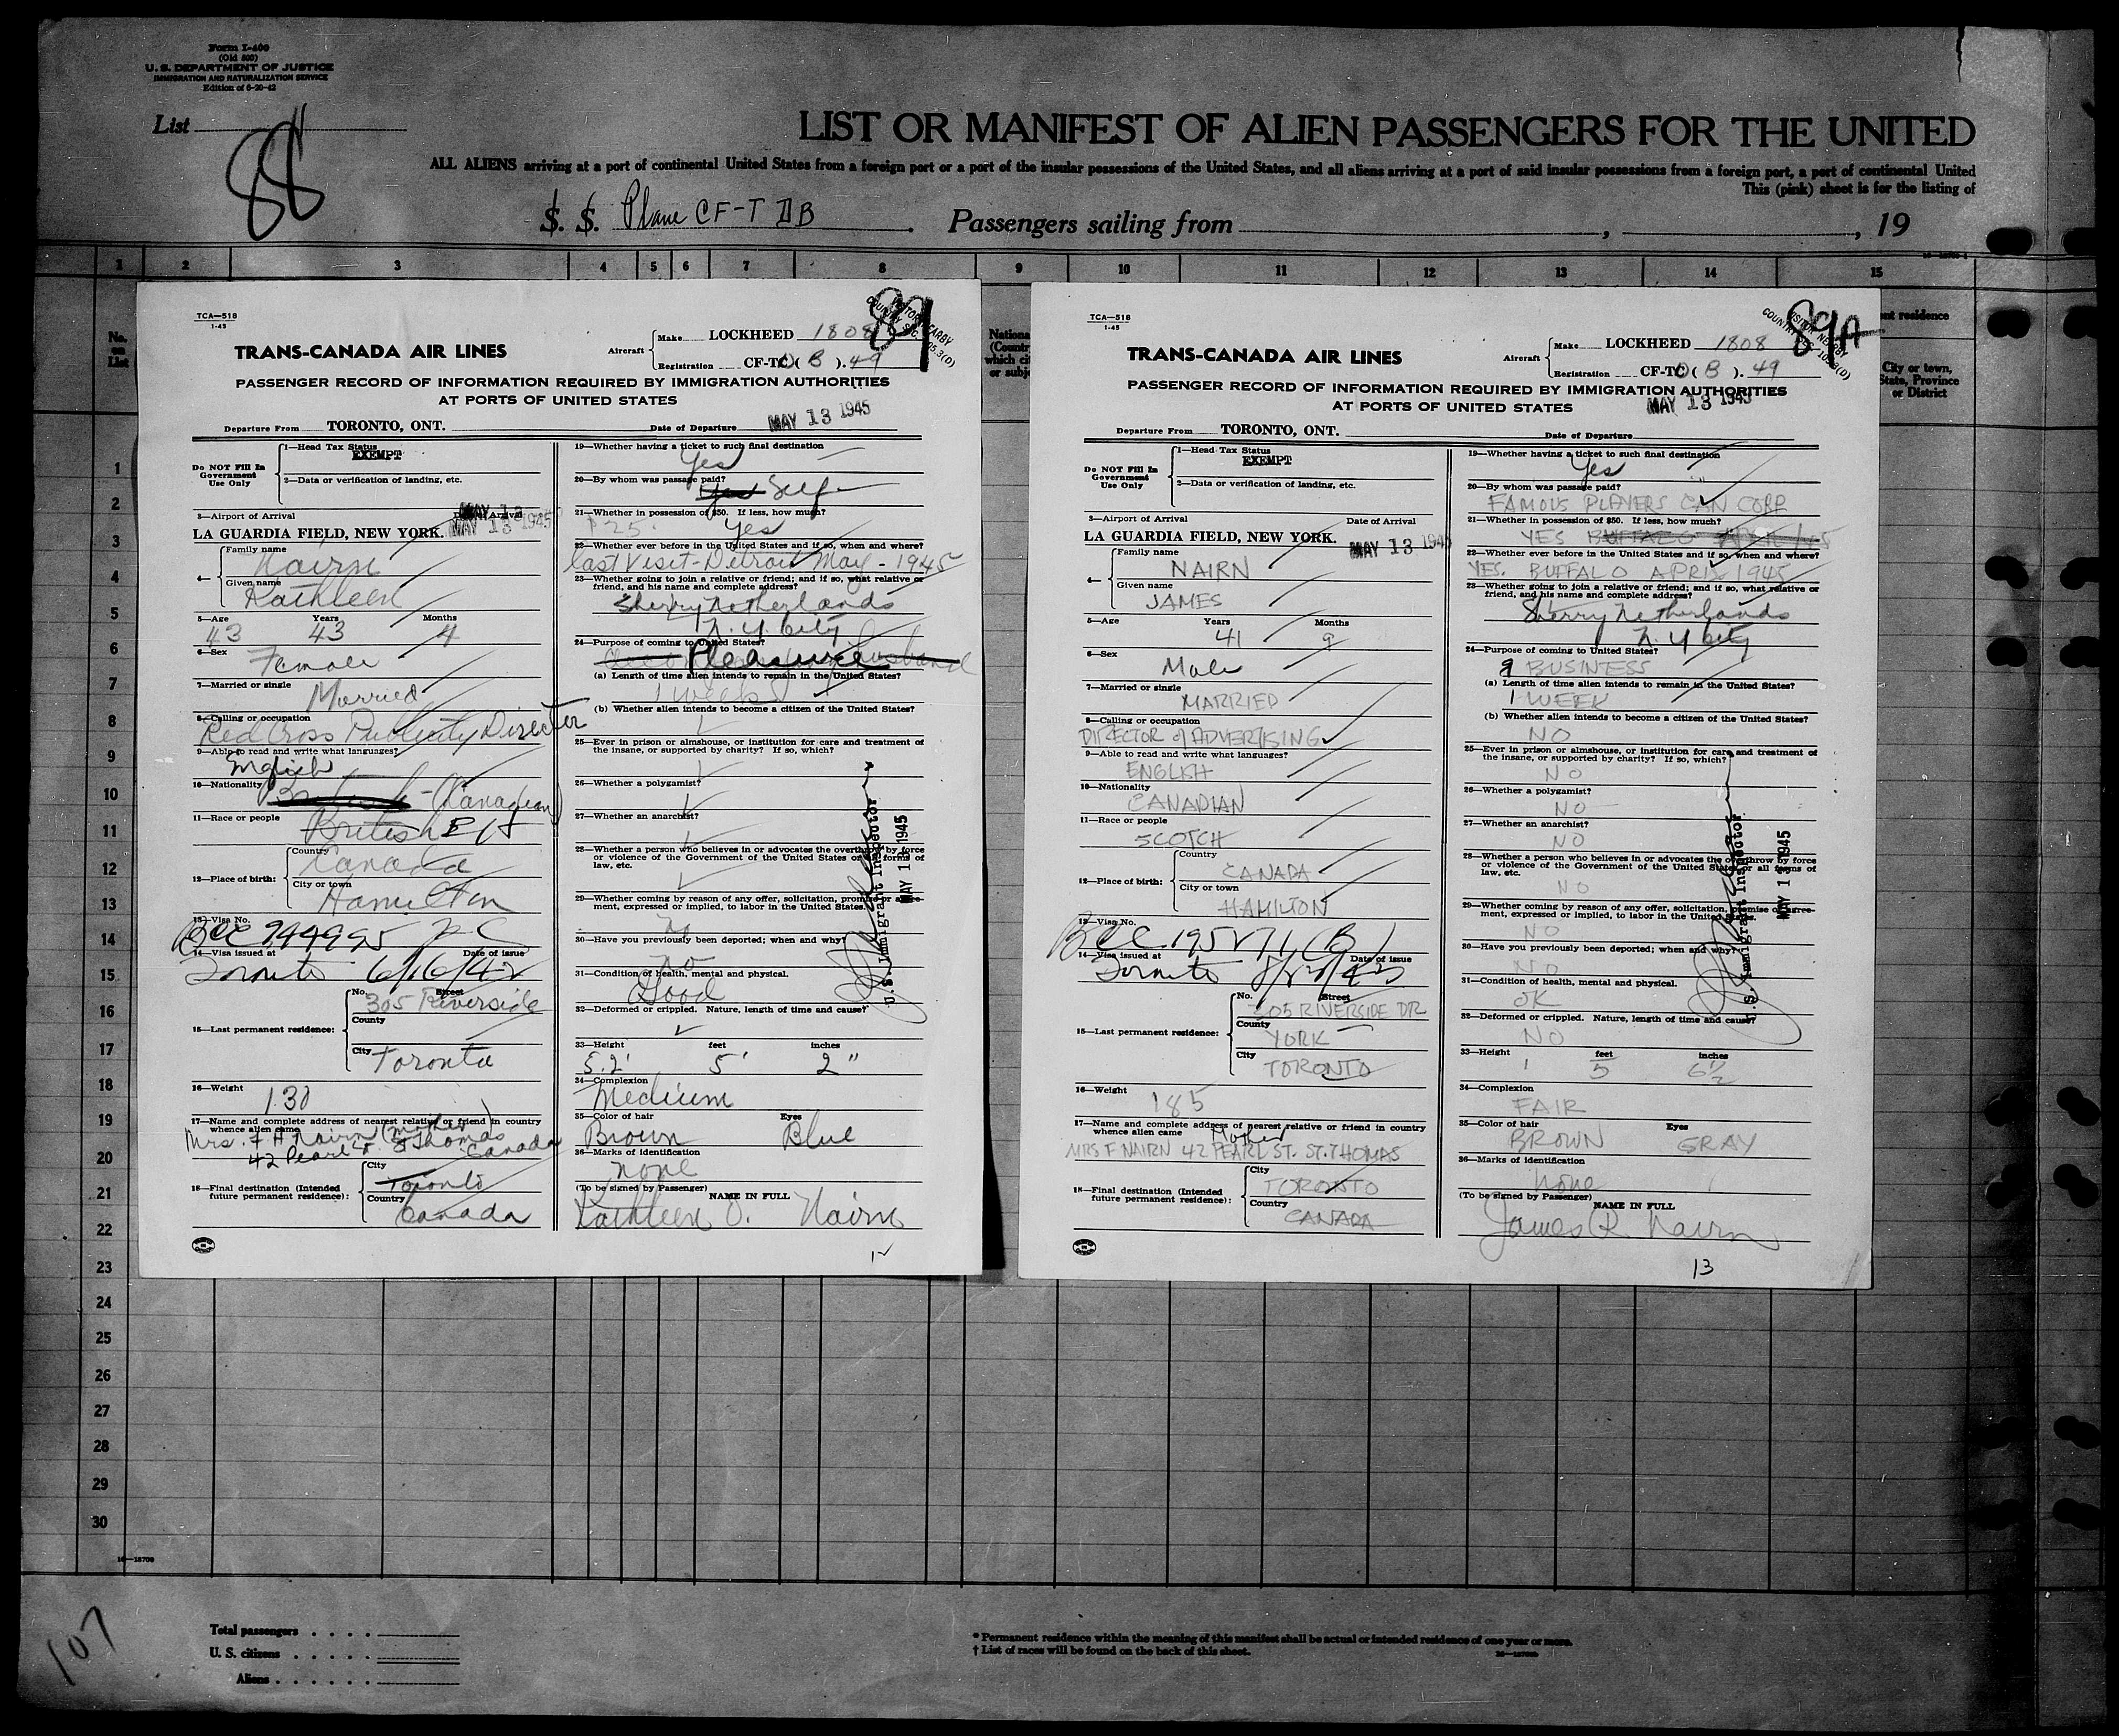 Form I-400
(Old 500)
U. S. DEPARTMENT OF JUSTICE
IMMIGRATION AND NATURALIZATION SERVICE
Edition of 6-20-42
List
88
LIST OR MANIFEST OF ALIEN PASSENGERS FOR THE UNITED
ALL ALIENS arriving at a port of continental United States from a foreign port or a port of the insular possessions of the United States, and all aliens arriving at a port of said insular possessions from a foreign port, a port of continental United
This (pink) sheet is for the listing of
S. S. Plane CF-T DB . Passengers sailing from , , 19
1 2 3 4 5 6 7 8 9 10 11 12 13 14 15
No. on List
TCA—518
1-45
TRANS-CANADA AIR LINES
Aircraft
Make LOCKHEED 1808
Registration CF-TC ( B ). 49
89
PASSENGER RECORD OF INFORMATION REQUIRED BY IMMIGRATION AUTHORITIES
AT PORTS OF UNITED STATES
Departure From TORONTO, ONT. Date of Departure MAY 13 1945
Do NOT Fill In Government Use Only
1—Head Tax Status
EXEMPT
2—Data or verification of landing, etc.
3—Airport of Arrival Date of Arrival
LA GUARDIA FIELD, NEW YORK. MAY 13 1945
4—
Family name
Nairn
Given name
Kathleen
5—Age Years Months
43 43 4
6—Sex
Female
7—Married or single
Married
8—Calling or occupation
Red Cross Publicity Director
9—Able to read and write what languages?
English
10—Nationality
British - (Canadian)
11—Race or people
British
12—Place of birth:
Country
Canada
City or town
Hamilton
13—Visa No.
BCC 944995
14—Visa issued at Date of issue
Toronto 6/16/42
15—Last permanent residence:
No. Street
305 Riverside
County
City
Toronto
16—Weight
130
17—Name and complete address of nearest relative or friend in country whence alien came
Mrs. F H Nairn (mother)
42 Pearl St. St Thomas
Canada
18—Final destination (Intended future permanent residence):
City
Toronto
Country
Canada
19—Whether having a ticket to such final destination
Yes
20—By whom was passage paid?
Yes Self
21—Whether in possession of $50. If less, how much?
25 Yes
22—Whether ever before in the United States and if so, when and where?
last Visit - Detroit May - 1945
23—Whether going to join a relative or friend; and if so, what relative or friend, and his name and complete address?
Sherry Netherlands
N. Y. City
24—Purpose of coming to United States?
Pleasure husband
(a) Length of time alien intends to remain in the United States?
1 week
(b) Whether alien intends to become a citizen of the United States?
25—Ever in prison or almshouse, or institution for care and treatment of the insane, or supported by charity? If so, which?
26—Whether a polygamist?
27—Whether an anarchist?
28—Whether a person who believes in or advocates the overthrow by force or violence of the Government of the United States or all forms of law, etc.
29—Whether coming by reason of any offer, solicitation, promise or agreement, expressed or implied, to labor in the United States.
no
30—Have you previously been deported; when and why?
no
31—Condition of health, mental and physical.
Good
32—Deformed or crippled. Nature, length of time and cause?
33—Height feet inches
5.2' 5' 2"
34—Complexion
Medium
35—Color of hair Eyes
Brown Blue
36—Marks of identification
none
(To be signed by Passenger) NAME IN FULL
Kathleen O. Nairn
U. S. Immigrant Inspector
MAY 13 1945
12
Nationality
(Country of
which citizen
or subject)
TCA—518
1-45
TRANS-CANADA AIR LINES
Aircraft
Make LOCKHEED 1808
Registration CF-TC ( B ). 49
89A
PASSENGER RECORD OF INFORMATION REQUIRED BY IMMIGRATION AUTHORITIES
AT PORTS OF UNITED STATES
MAY 13 1945
Departure From TORONTO, ONT. Date of Departure
Do NOT Fill In Government Use Only
1—Head Tax Status
EXEMPT
2—Data or verification of landing, etc.
3—Airport of Arrival Date of Arrival
LA GUARDIA FIELD, NEW YORK. MAY 13 1945
4—
Family name
NAIRN
Given name
JAMES
5—Age Years Months
41 9
6—Sex
Male
7—Married or single
MARRIED
8—Calling or occupation
DIRECTOR of ADVERTISING
9—Able to read and write what languages?
ENGLISH
10—Nationality
CANADIAN
11—Race or people
SCOTCH
12—Place of birth:
Country
CANADA
City or town
HAMILTON
13—Visa No.
BCC
14—Visa issued at Date of issue
Toronto
15—Last permanent residence:
No. Street
305 RIVERSIDE DR
County
YORK
City
TORONTO
16—Weight
185
17—Name and complete address of nearest relative or friend in country whence alien came
Mother
MRS F NAIRN 42 PEARL ST. ST. THOMAS
18—Final destination (Intended future permanent residence):
City
TORONTO
Country
CANADA
19—Whether having a ticket to such final destination
Yes
20—By whom was passage paid?
FAMOUS PLAYERS CAN CORP
21—Whether in possession of $50. If less, how much?
YES BUFFALO APRIL/45
22—Whether ever before in the United States and if so, when and where?
YES. BUFFALO APRIL 1945
23—Whether going to join a relative or friend; and if so, what relative or friend, and his name and complete address?
Sherry Netherlands
N. Y City
24—Purpose of coming to United States?
BUSINESS
(a) Length of time alien intends to remain in the United States?
1 WEEK
(b) Whether alien intends to become a citizen of the United States?
NO
25—Ever in prison or almshouse, or institution for care and treatment of the insane, or supported by charity? If so, which?
NO
26—Whether a polygamist?
NO
27—Whether an anarchist?
NO
28—Whether a person who believes in or advocates the overthrow by force or violence of the Government of the United States or all forms of law, etc.
NO
29—Whether coming by reason of any offer, solicitation, promise or agreement, expressed or implied, to labor in the United States.
NO
30—Have you previously been deported; when and why?
NO
31—Condition of health, mental and physical.
OK
32—Deformed or crippled. Nature, length of time and cause?
NO
33—Height feet inches
5 6½
34—Complexion
FAIR
35—Color of hair Eyes
BROWN GRAY
36—Marks of identification
none
(To be signed by Passenger) NAME IN FULL
James R. Nairn
U. S. Immigrant Inspector
MAY 13 1945
13
residence
City or town,
State, Province
or District
1
2
3
4
5
6
7
8
9
10
11
12
13
14
15
16
17
18
19
20
21
22
23
24
25
26
27
28
29
30
16—18700
107
Total passengers
U. S. citizens
Aliens
* Permanent residence within the meaning of this manifest shall be actual or intended residence of one year or more.
† List of races will be found on the back of this sheet.